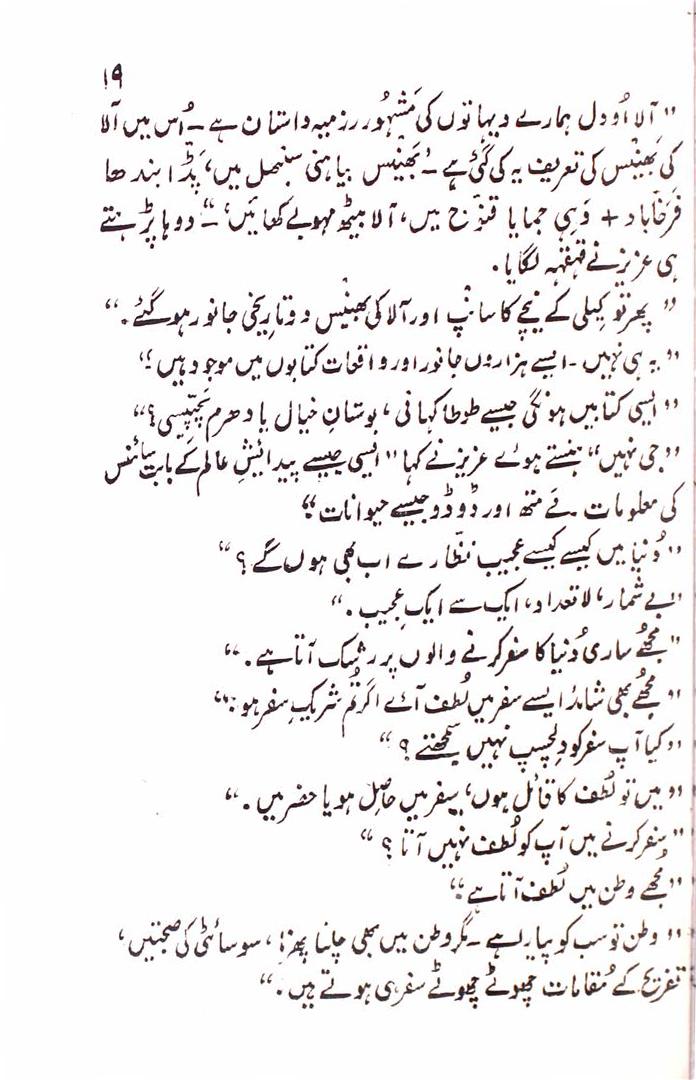 ۱۹
"آلا اُودل ہمارے دیہاتوں کی مَشہُور رزمیہ داستان ہے ۔ اُس میں آلا
کی بَھینس کی تعریف یہ کی گئی ہے ۔ 'بَھینس بیاہنی سنبھل میں، پَڈّا بندھا
فرخاباد + دَہی جمایا قنوّج میں، آلا بیٹھ مہوبے کھائیں،' ۔" دوہا پڑہتے
ہی عزیز نے قہقہہ لگایا۔
"پھر تو کِیلی کے نیچے کا سانپ اور آلا کی بھینس دو تاریخی جانور ہو گئے۔"
"یہ ہی نہیں ۔ ایسے ہزاروں جانور اور واقعات کتابوں میں موجود ہیں؛"
"ایسی کتابیں ہونگی جیسے طوطا کہانی، بوستانِ خیال یا دھرم پچِیسی؟"
"جی نہیں" ہنستے ہوئے عزیز نے کہا "ایسی جیسے پیدائیشِ عالم کے بابت سائنس
کی معلومات نے متھ اور ڈوڈو جیسے حیوانات؛"
"دُنیا میں کیسے کیسے عجیب نظّارے اب بھی ہوں گے؟"
"بے شمار، لا تعداد، ایک سے ایک عجیب۔"
"مجُھے ساری دُنیا کا سفر کرنے والوں پر رشک آتا ہے۔"
"مجُھے بھی شائد ایسے سفر میں لُطف آئے اگر تُم شریکِ سفر ہو۔"
"کیا آپ سفر کو دِلچسپ نہیں سمجھتے؟"
"میں تو لُطف کا قائل ہوں، سفر میں حاصِل ہو یا حضر میں۔"
"سفر کرنے میں آپ کو لُطف نہیں آتا؟"
"مجُھے وطن میں لُطف آتا ہے"
"وطن تو سب کو پیارا ہے ۔ مگر وطن میں بھی چلنا پھرنا، سوسائٹی کی صحبتیں،
تفریح کے مُقامات چھوٹے چھوٹے سفر ہی ہوتے ہیں۔"